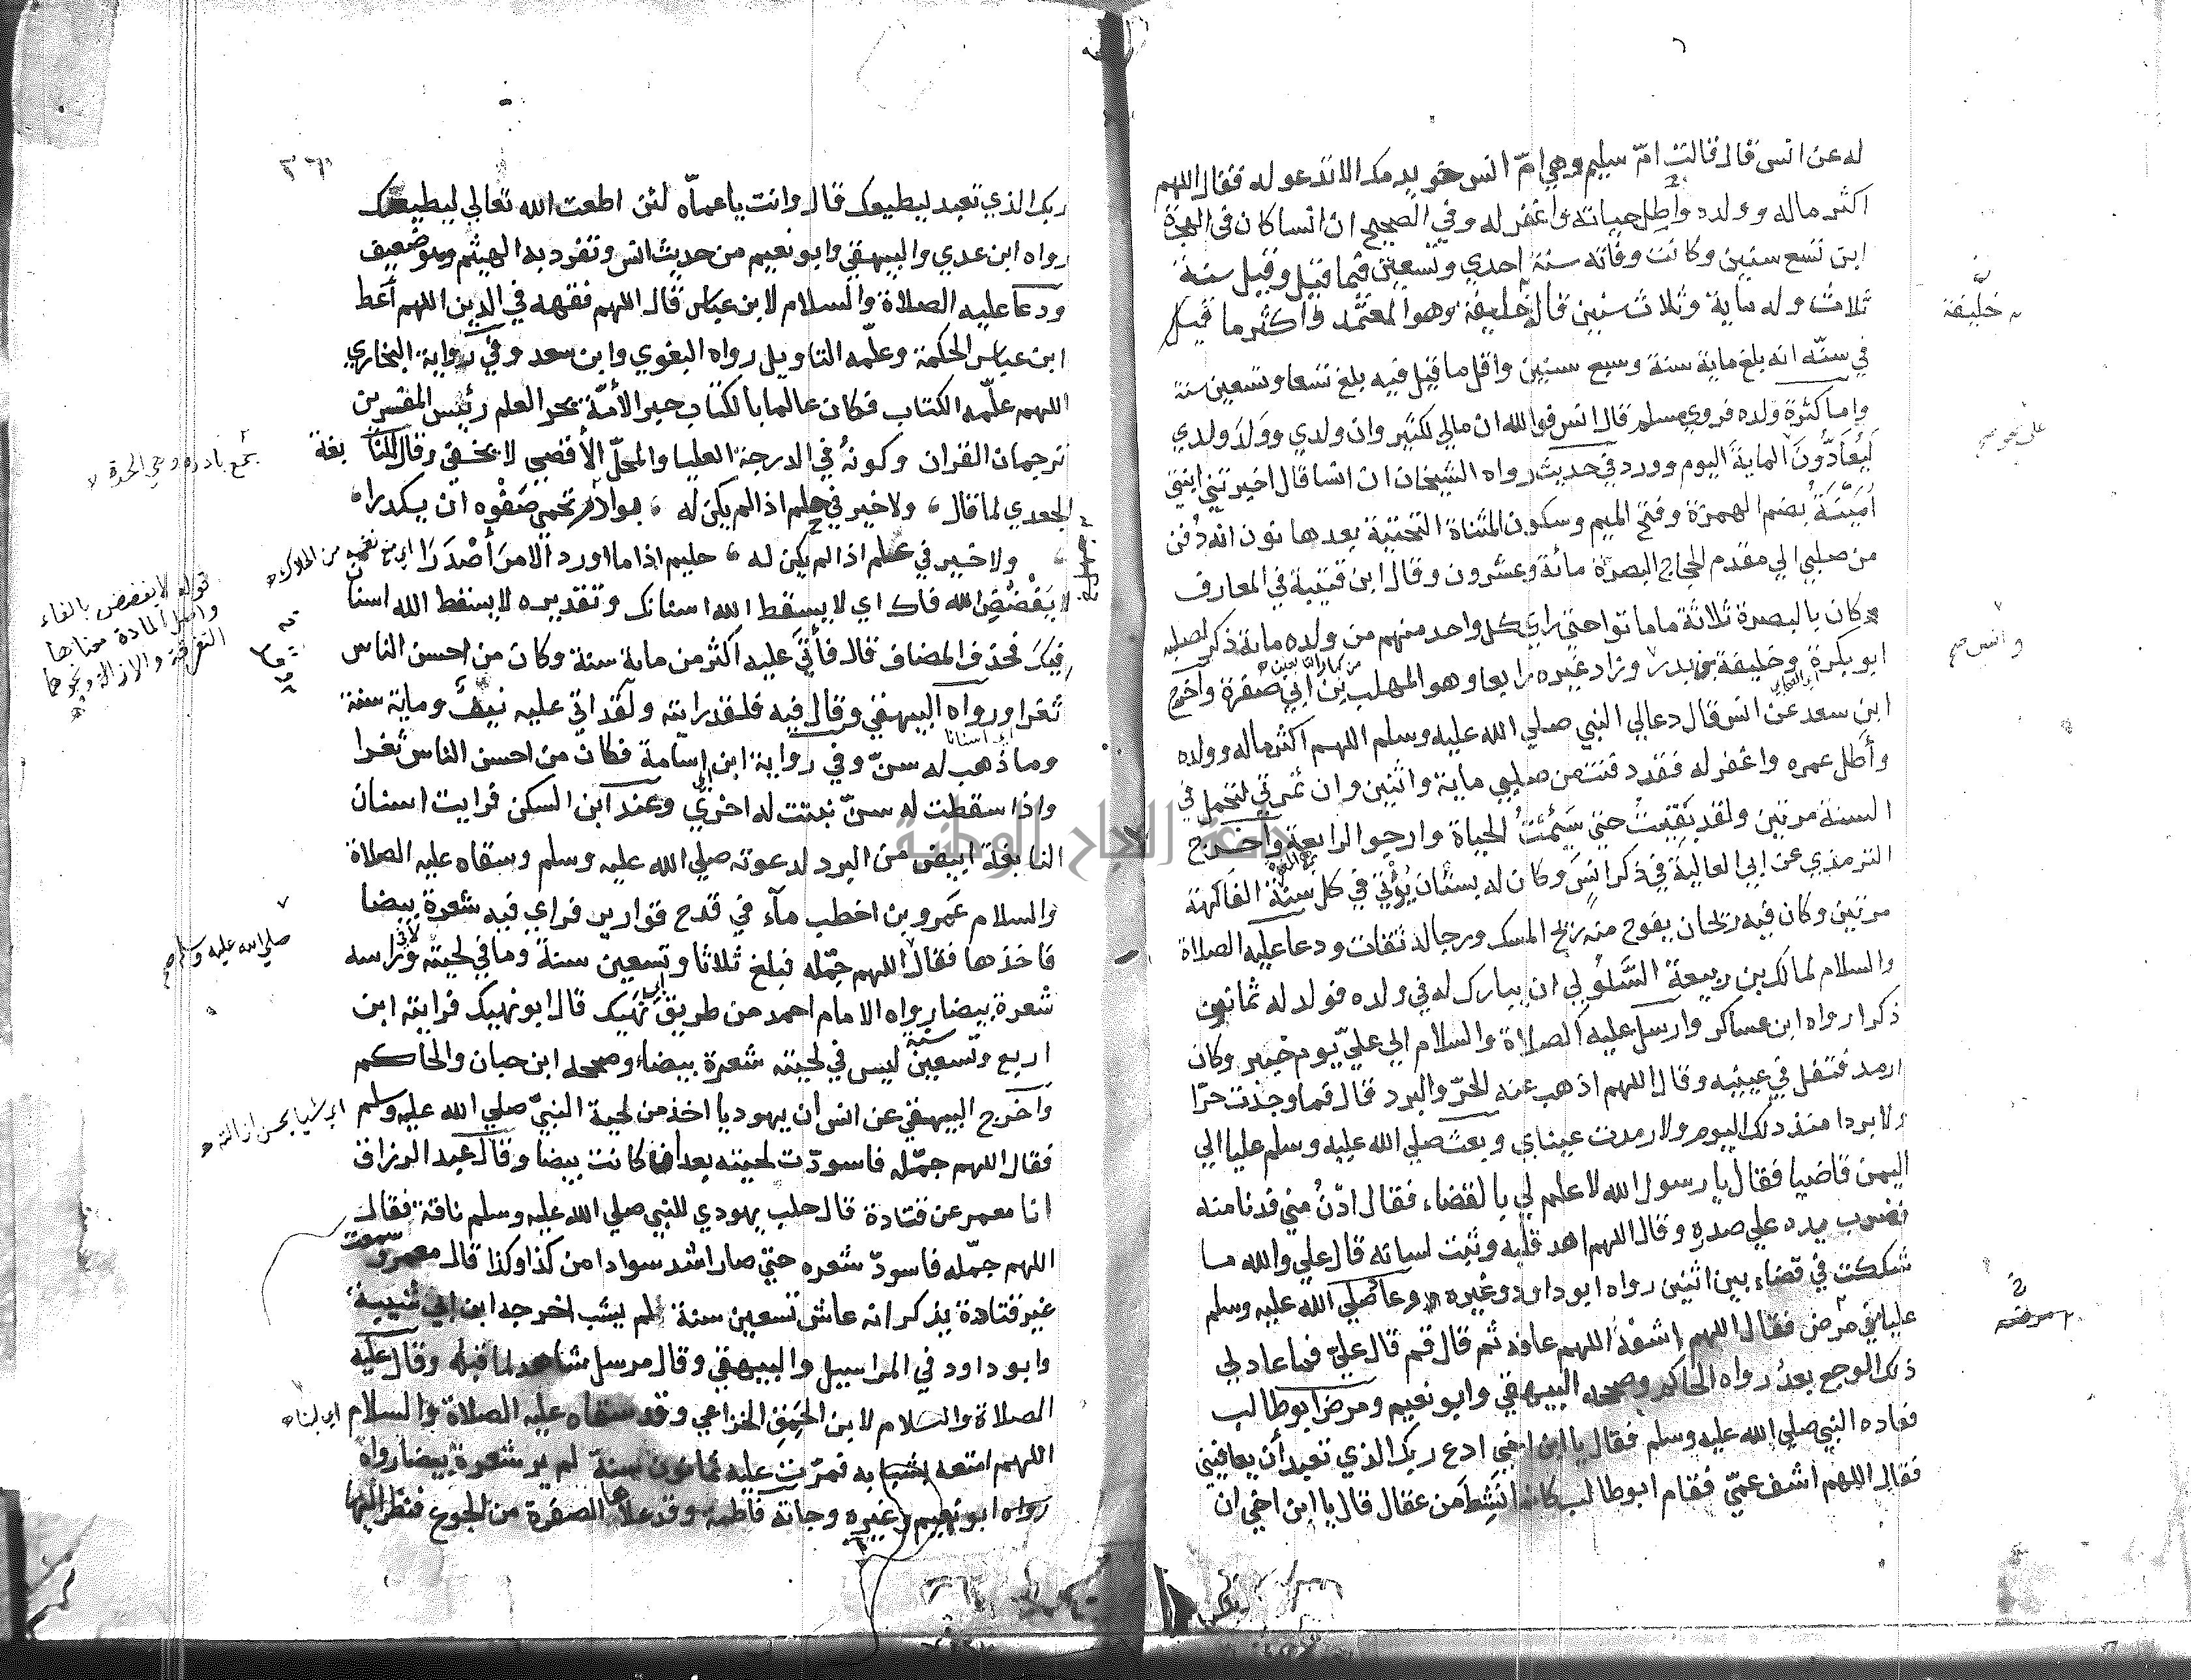 له عن انس قال قالت ام سليم وهي امّ انس خويدمك الا تدعو له فقال اللهم
اكثر ماله وولده واطل حياته واغفر له وفي الصحيح ان انسا كان في الهجرة
ابن تسع سنين وكانت وفاته سنة احدي وتسعين فيما قيل وقيل سنة
ثلاث وله ماية وثلاث سنين قاله خليفة وهو المعتمد واكثر ما قيل
في سنّه انه بلغ ماية سنة وسبع سنين واقل ما قيل فيه بلغ تسعا وتسعين سنة
واما كثرة ولده فروي مسلم قال انس فوالله ان مالي لكثير وان ولدي وولد ولدي
ليُعَادُّونَ الماية اليوم وورد في حديث رواه الشيخان ان انسا قال اخبرتني ابنتي
اُمَيْنَةُ بضم الهمزة وفتح الميم وسكون المثناة التحتية بعدها نون انه دُفن
من صلبي الي مقدم الحجاج البصرة مائة وعشرون وقال ابن قتيبة في المعارف
كان بالبصرة ثلاثة ما ماتوا حتي راي كل واحد منهم من ولده ماية ذكر لصلبه
ابو بكرة وخليفة بن بدر وزاد غيره رابعا وهو المهلب بن ابي صفرة واخرج
ابن سعد عن انس قال دعا لي النبي صلي الله عليه وسلم اللهم اكثر ماله وولده
وأطل عمره واغفر له فقد دفنت من صلبي ماية واثنين وان ثمرتي لتحمل في
السنة مرتين ولقد بقيتُ حتي سَئِمْتُ الحياة وارجو الرابعة واخرج
الترمذي عن ابي العالية في ذكر انس وكان له بستان يُؤْتي في كل سنة الفاكهة
مرتين وكان فيه ريحان يفوح منه ريح المسك ورجاله ثقات ودعا عليه الصلاة
والسلام لمالك بن ربيعة السَّلُولي ان يبارك له في ولده فولد له ثمانون
ذكرا رواه ابن عساكر وارسل عليه الصلاة والسلام الي عليّ يوم خيبر وكان
ارمد فتفل في عينيه وقال اللهم اذهب عنه الحرّ والبرد قال فما وجدت حرّا
ولا بردا منذ ذلك اليوم ولا رمدت عيناي وبعث صلي الله عليه وسلم عليا الي
اليمن قاضيا فقال يا رسول الله لا علم لي بالقضاء فقال ادنُ مني فدنا منه
فضرب بيده علي صدره وقال اللهم اهد قلبه وثبت لسانه قال علي والله ما
شككت في قضاء بين اثنين رواه ابو داود وغيره وعا صلي الله عليه وسلم
عليا في مرض فقال اللهم اشفه اللهم عافه ثم قال قم قال عليّ فما عاد لي
ذلك الوجع بعدُ رواه الحاكم وصححه البيهقي وابو نعيم ومرض ابو طالب
فعاده النبي صلي الله عليه وسلم فقال يا ابن اخي ادع ربك الذي تعبد أن يعافيني
فقال اللهم اشف عمّي فقام ابو طالب كانما نشط من عقال قال يا ابن اخي ان
خليفة
وانس صح
مرضه
ربك الذي تعبد ليطيعك قال وانت يا عمّاه لئن اطعت الله تعالي ليطيعنك
رواه ابن عدي والبيهقي وابو نعيم من حديث انس وتفرد به الهيثم وهو ضعيف
ودعا عليه الصلاة والسلام لابن عباس قال اللهم فقهه في الدين اللهم أعط
ابن عباس الحكمة وعلّمه التاويل رواه البغوي وابن سعد وفي رواية البخاري
اللهم علّمه الكتاب فكان عالما بالكتاب حبر الأمّة بحر العلم رئيس المفسرين
ترجمان القران وكونهُ في الدرجة العليا والمحلّ الأقصي لا يخفي وقال للنابغة
الجعدي لما قال ولا خير في حلم اذا لم يكن له بوادر تحمي صَفْوه ان يكدرا
ولا خير في علم اذا لم يكن له حليم اذا ما اورد الامر أَصْدَرَا
لا يَفْضُضِ الله فاك اي لا يسقط الله اسنانك وتقديره لا يسقط الله اسنان
فيك فحذف المضاف قال فأتي عليه اكثر من ماية سنة وكان من احسن الناس
ثغرا ورواه البيهقي وقال فيه فلقد رايته ولقد اتي عليه نيفٌ وماية سنة
وما ذهب له سنّ وفي رواية ابن ابي اسامة فكان من احسن الناس ثغرا
واذا سقطت له سنّ نبتت له اخري وعند ابن السكن فرايت اسنان
النابغة ابيض من البرد لدعوته صلي الله عليه وسلم وسقاه عليه الصلاة
والسلام عمرو بن اخطب مآء في قدح قوارير فراي فيه شعرة بيضا
فاخذها فقال اللهم جمّله فبلغ ثلاثا وتسعين سنة وما في لحيته وراسه
شعرة بيضا رواه الامام احمد من طريق ابي نَهِيك قال ابو نهيك فرايته ابن
اربع وتسعين سنة ليس في لحيته شعرة بيضاء وصححه ابن حبان والحاكم
واخرج البيهقي عن انس ان يهوديا اخذ من لحية النبيّ صلي الله عليه وسلم
فقال اللهم جمّله فاسودّت لحيته بعد ان كانت بيضا وقال عبد الرزاق
انا معمر عن قتادة قال حلب يهودي للنبي صلي الله عليه وسلم ناقة فقال
اللهم جمّله فاسودّ شعره حتي صار اشد سوادا من كذا وكذا قال معمر وسمعت
غير قتادة يذكر انه عاش تسعين سنة فلم يشب اخرجه ابن ابي شيبة
وابو داود في المراسيل والبيهقي وقال مرسل شاهد لما قبله وقال عليه
الصلاة والسلام لابن الحَمِق الخزاعي وقد سقاه عليه الصلاة والسلام
اللهم امتعه بشبابه فمرّت عليه ثمانون سنة لم ير شعرة بيضا رواه
رواه ابو نعيم وغيره وجاته فاطمة وقد علاها الصفرة من الجوع فنظر اليها
جمع بادرة وهي الحدة
قوله لا يفضض بالفاء
واصل المادة معناها
التفرقة والازالة ونحوهما
صلي الله عليه وسلم صح
اي شيا يحسن ازالته
اي لبنا
جامعة النجاح الوطنية